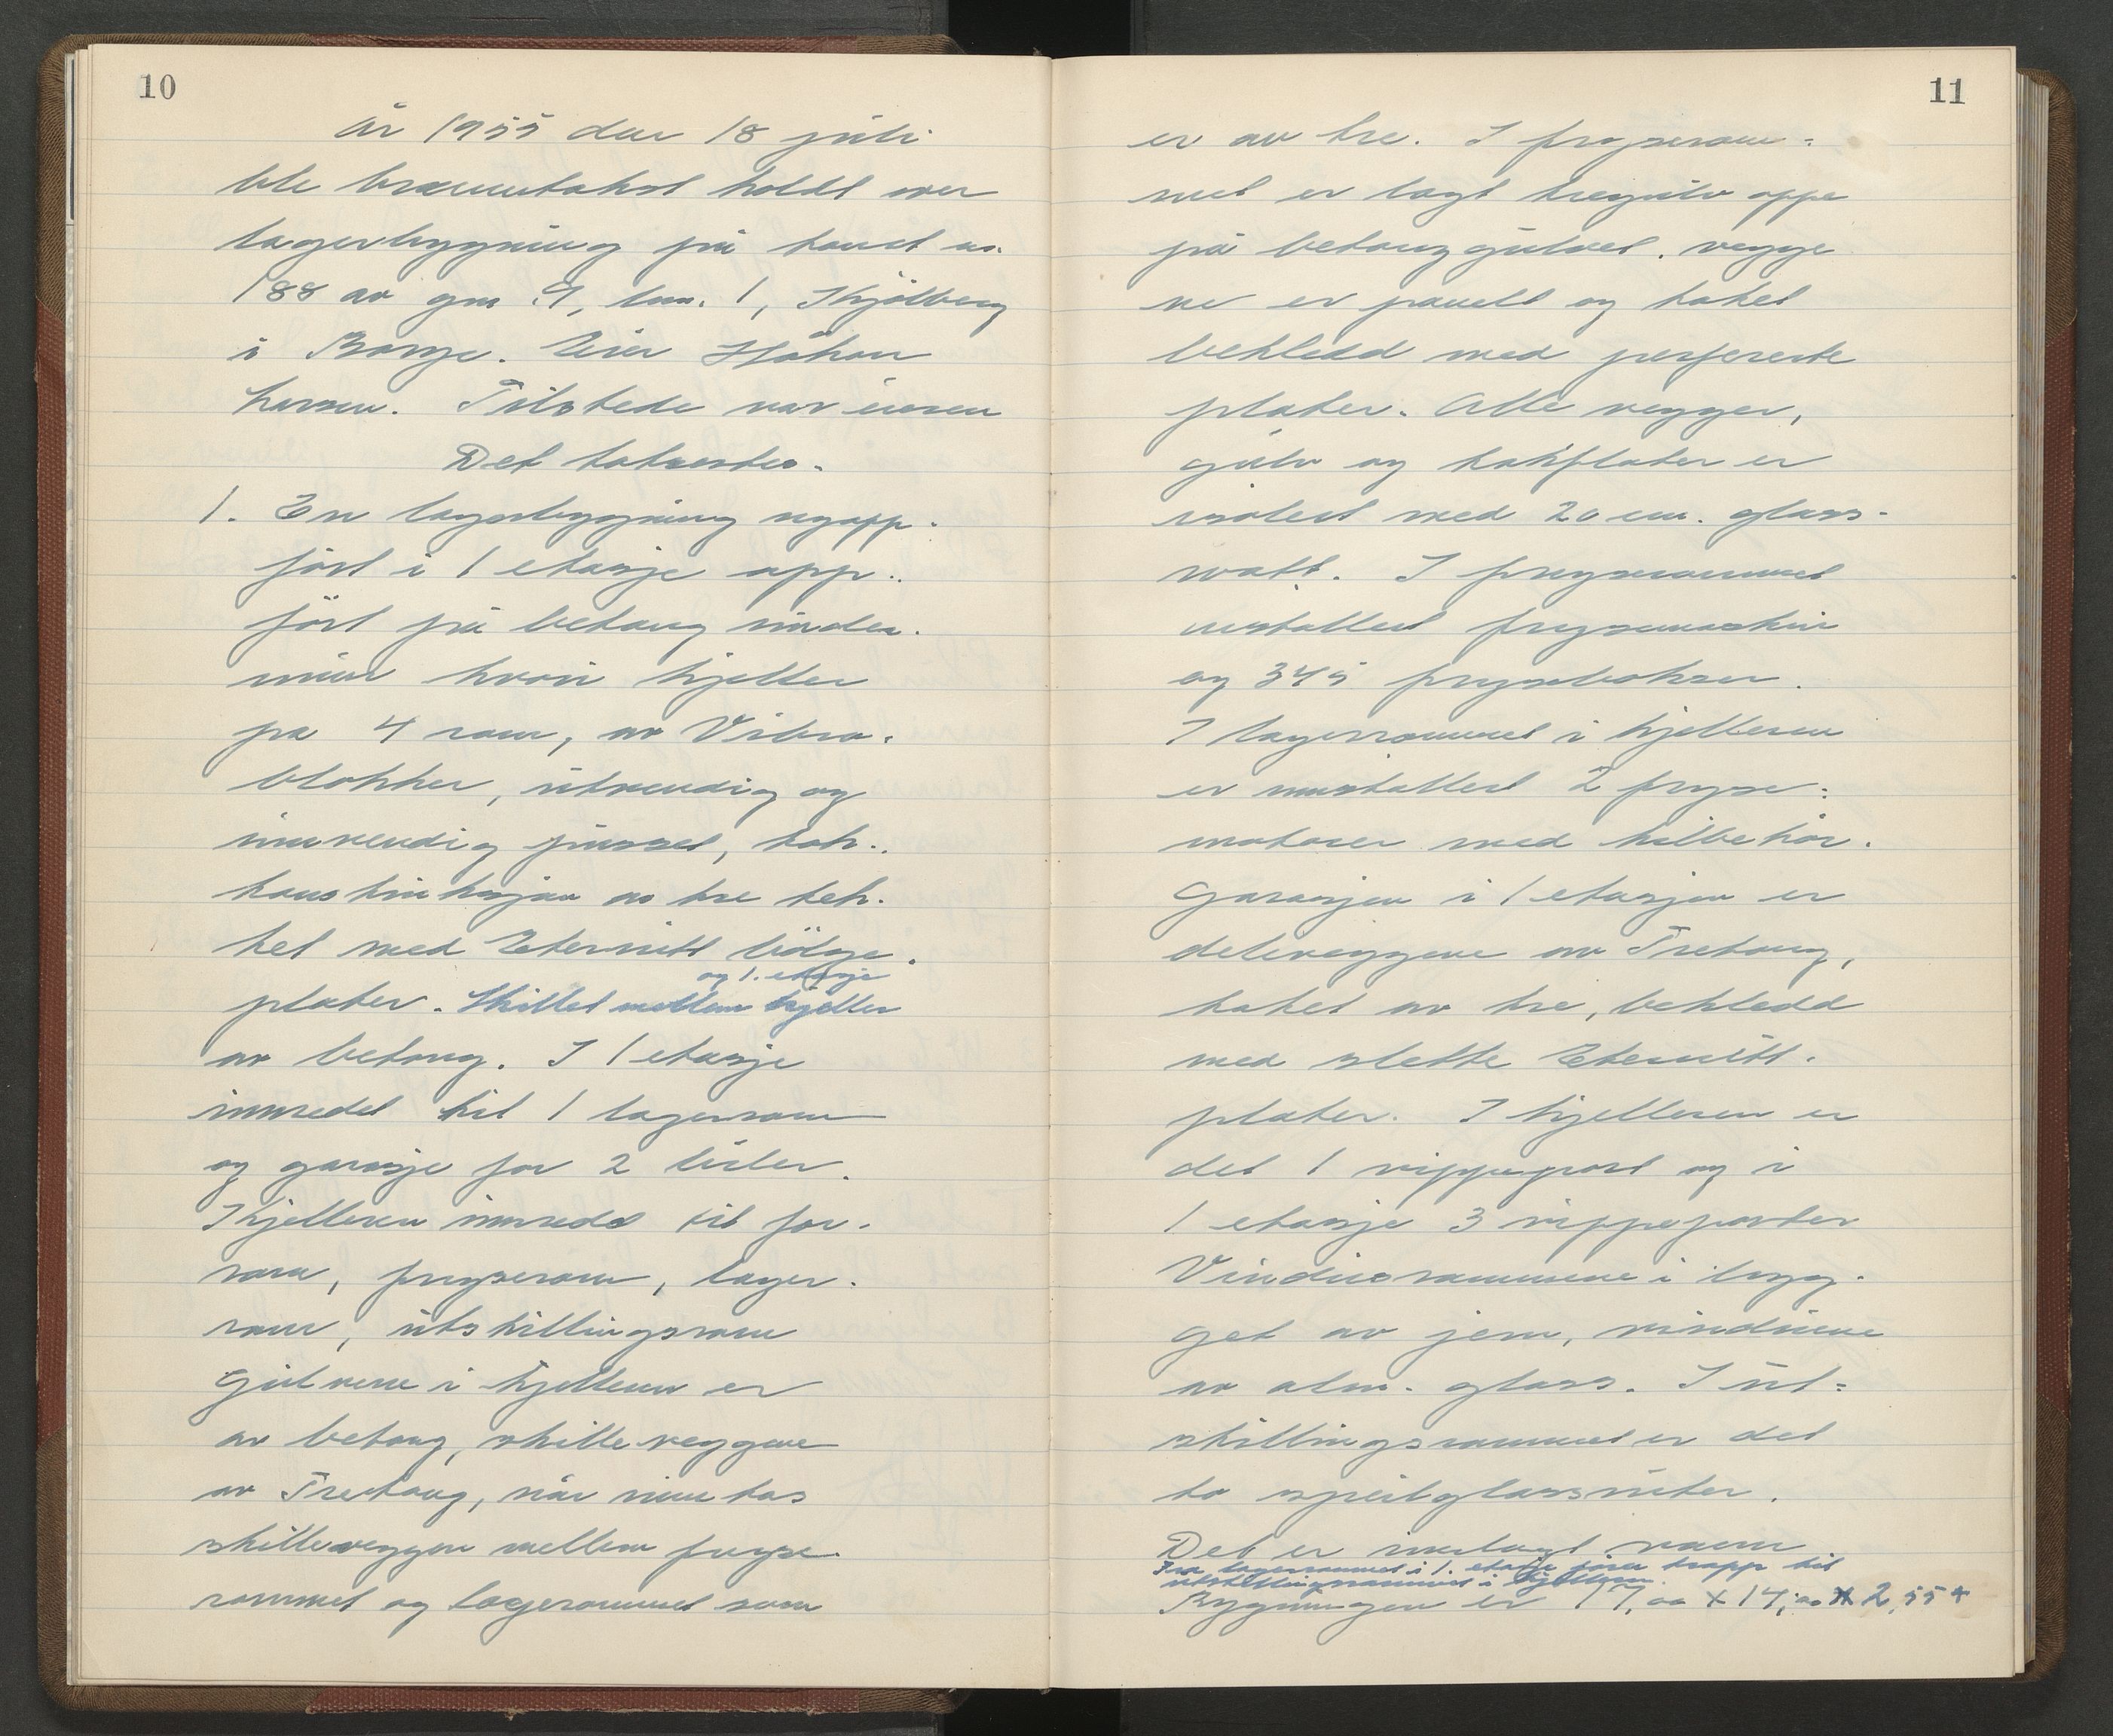 10
År 1955 den 18 juli
ble branntakst holdt over
lagerbygning på tomt nr.
188 av gnr 9, bnr. 1, Skjølberg
i Borge. Eier Håkon
Larsen. Tilstede var eieren
Det taksertes.
1. En lagerbygning nyopp-
ført i 1 etasje opp-
ført på betong under-
mur hvori kjeller
på 4 rom, av Vibro-
blokker, utvendig og
innvendig pusset, tak-
konstruksjon av tre tek-
ket med Eternitt bølge-
og 1. etasje
plater. Skillet mellem kjeller
av betong. I 1 etasje
innredet til 1 lagerrom
og garasje for 2 biler.
I kjelleren innredet til for-
rom, fryserom, lager-
rom, utstillingsrom
Gulvene i kjelleren er
av betong, skilleveggene
av Trebetong, når unntas
skilleveggen mellem fryse-
rommet og lagerrommet som
11
er av tre. I fryserom-
met er lagt tregulv oppe
på betonggulvet. vegge
ne er panelt og taket
bekledd med perforerte
plater. Alle vegger,
gulv og takflater er
isolert med 20 cm. glass-
vatt. I fryserommet
installert frysemaskin
og 345 frysebokser.
I lagerrommet i kjelleren
er innstallert 2 fryse-
motorer med tilbehør.
Garasjen i 1 etasjen er
deleveggene av Trebetong,
taket av tre, bekledd
med slette Eternitt-
plater. I kjelleren er
det 1 vippeport og i
1 etasje 3 vippeporter
Vindusrammene i bygg-
get av jern, vinduene
av alm. glass. I ut-
stillingsrommet er det
to speilglassruter.
Det er innlagt vann
Fra lagerrommet i 1. etasje fører trapp til
utstillingsrommet i kjelleren.
Bygningen er 17,00 x 14,00 x 2,55 +